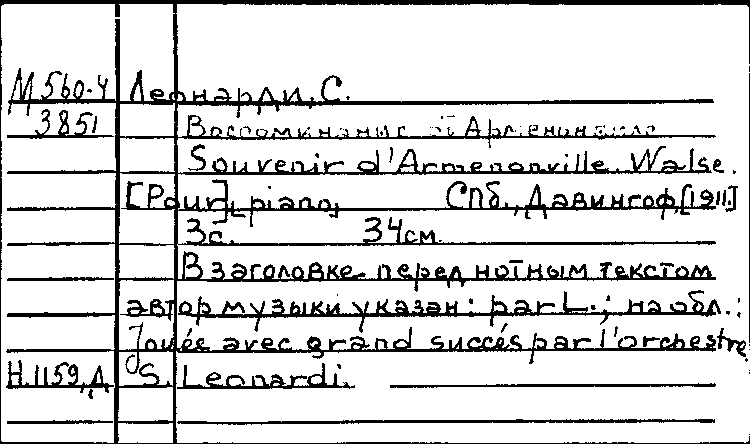 М 560-4 Леонарди, С.
3851 Воспоминание об Арменонвиле
Souvenir d'Armenonville. Walse.
[Pour], piano, СПб., Давингоф, [1911.]
3с. 34см.
В заголовке перед нотным текстом
автор музыки указан: par L.; на обл.:
Jouée avec grand succés par l'orchestre
Н.1159, Д S. Leonardi.